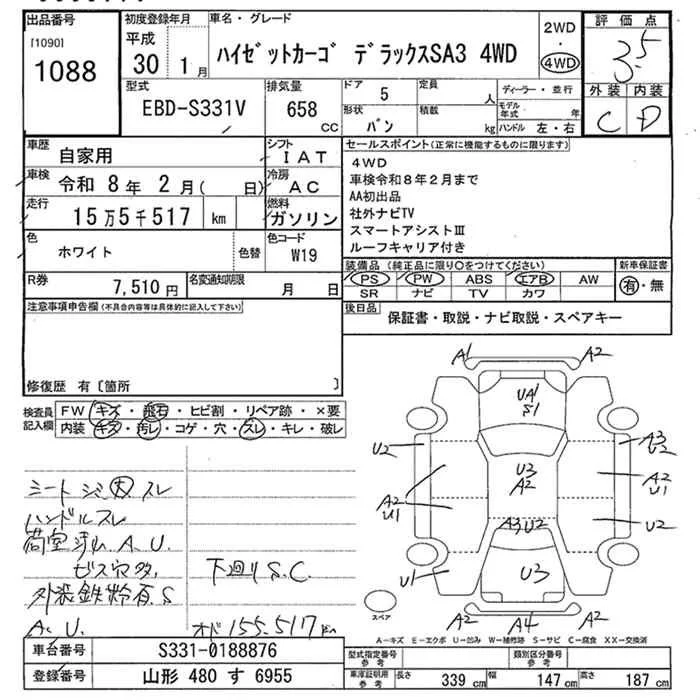 出品番号
[1090]
1088
初度登録年月
平成
30 1月
車名・グレード
ハイゼットカーゴ デラックスSA3 4WD
2WD
・
4WD
評価点
3.5
外装 内装
C D
型式
EBD-S331V
排気量
658
CC
ドア 5
形状 バン
定員 人
積載 kg
ディーラー・並行
モデル年式 年
ハンドル 左・右
車歴 自家用
車検 令和 8年 2月( 日)
走行 15万5千517 km
シフト IAT
冷房 AC
燃料 ガソリン
色 ホワイト 色替
色コード W19
R券 7,510円
名変通知期限 月 日
セールスポイント(正常に機能するものに限ります)
4WD
車検令和8年2月まで
AA初出品
社外ナビTV
スマートアシストⅢ
ルーフキャリア付き
装備品(純正品に限り○をつけてください)
PS PW ABS エアB AW
SR ナビ TV カワ
新車保証書
有・無
後日品 保証書・取説・ナビ取説・スペアキー
注意事項申告欄(不具合内容等は具体的に記入して下さい)
修復歴 有〔箇所 〕
検査員記入欄
FW キズ・飛石・ヒビ割・リペア跡・×要
内装 キズ・汚レ・コゲ・穴・スレ・キレ・破レ
シートシミ大 スレ
ハンドルスレ
荷室汚れ A.U.
ビス穴多
外装鉄粉有.S
A.U.
下廻りS.C.
オド 155.517km
A1 A2
UA1
S1
U2
A3
U2
U3
A2
A2
U1
A2
U1
A3U2
U2
U1
U3
A2 A4 A2
スペア
A−キズ E−エクボ U−凹み W−補修跡 S−サビ C−腐食 XX−交換済
車台番号 S331-0188876
登録番号 山形 480 す 6955
型式指定番号 参考
類別区分番号 参考
車庫証明用 参考
長さ 339 cm
幅 147 cm
高さ 187 cm